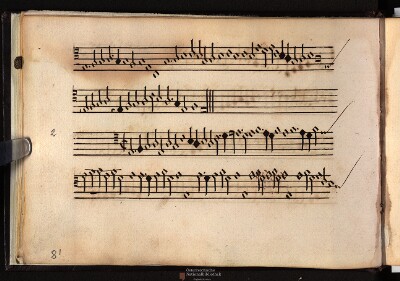 2
81
Österreichische
Nationalbibliothek